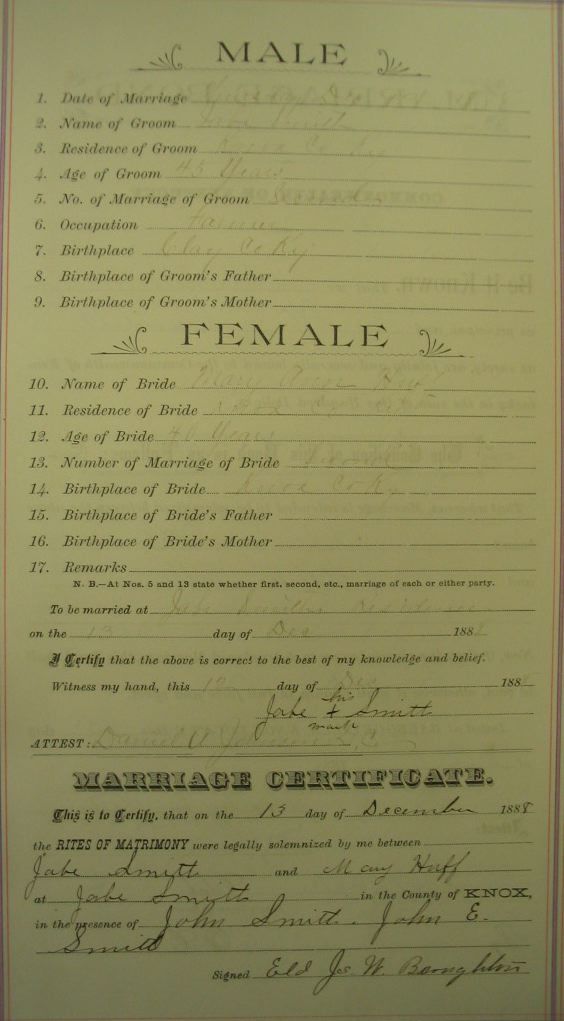 MALE
1. Date of Marriage
2. Name of Groom Jabe Smith
3. Residence of Groom Knox Co Ky
4. Age of Groom 45 Years
5. No. of Marriage of Groom Second
6. Occupation Farmer
7. Birthplace Clay Co Ky
8. Birthplace of Groom's Father
9. Birthplace of Groom's Mother
FEMALE
10. Name of Bride Mary Ann
11. Residence of Bride Knox
12. Age of Bride 40 Years
13. Number of Marriage of Bride
14. Birthplace of Bride Knox Co Ky
15. Birthplace of Bride's Father
16. Birthplace of Bride's Mother
17. Remarks
N. B.—At Nos. 5 and 13 state whether first, second, etc., marriage of each or either party.
To be married at Jabe Smiths Residence
on the 13 day of Dec 188
I Certify that the above is correct to the best of my knowledge and belief.
Witness my hand, this day of Dec 188
his
Jabe + Smith
mark
ATTEST: Daniel
MARRIAGE CERTIFICATE.
This is to Certify, that on the 13 day of December 1888
the RITES OF MATRIMONY were legally solemnized by me between
Jabe Smith and Mary Huff
at Jabe Smith in the County of KNOX,
in the presence of John Smith. John E.
Smith
Signed Eld Jo W. Beroughton